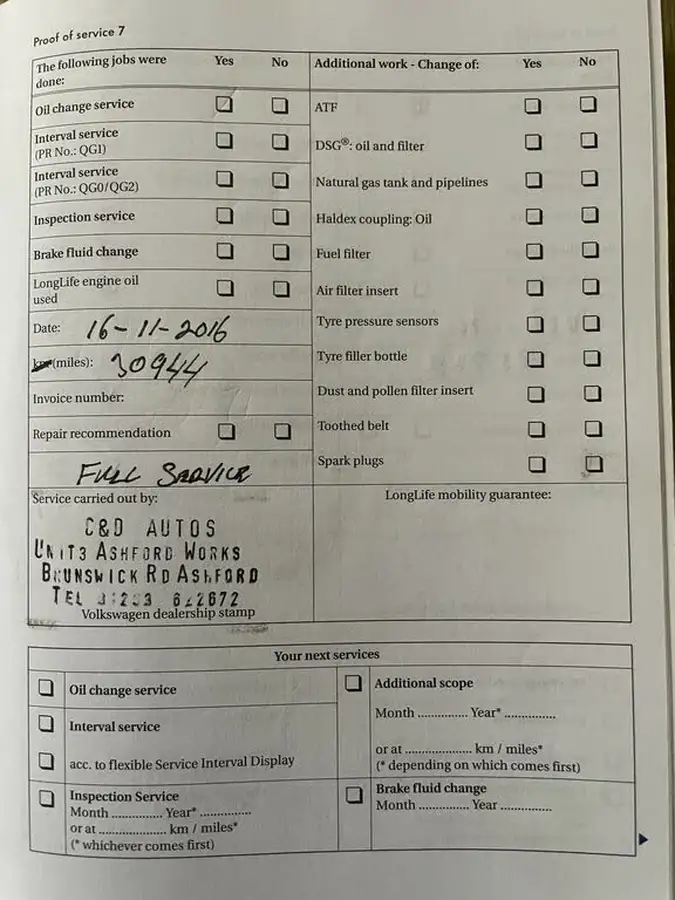 Proof of service 7
The following jobs were done: Yes No
Oil change service
Interval service
(PR No.: QG1)
Interval service
(PR No.: QG0/QG2)
Inspection service
Brake fluid change
LongLife engine oil
used
Date: 16-11-2016
km (miles): 30944
Invoice number:
Repair recommendation
FULL SERVICE
Service carried out by:
C&D AUTOS
UNIT3 ASHFORD WORKS
BRUNSWICK RD ASHFORD
TEL 622672
Volkswagen dealership stamp
Additional work - Change of: Yes No
ATF
DSG®: oil and filter
Natural gas tank and pipelines
Haldex coupling: Oil
Fuel filter
Air filter insert
Tyre pressure sensors
Tyre filler bottle
Dust and pollen filter insert
Toothed belt
Spark plugs
LongLife mobility guarantee:
Your next services
Oil change service
Interval service
acc. to flexible Service Interval Display
Inspection Service
Month .............. Year* ..............
or at .................... km / miles*
(* whichever comes first)
Additional scope
Month .............. Year* ..............
or at .................... km / miles*
(* depending on which comes first)
Brake fluid change
Month .............. Year ..............